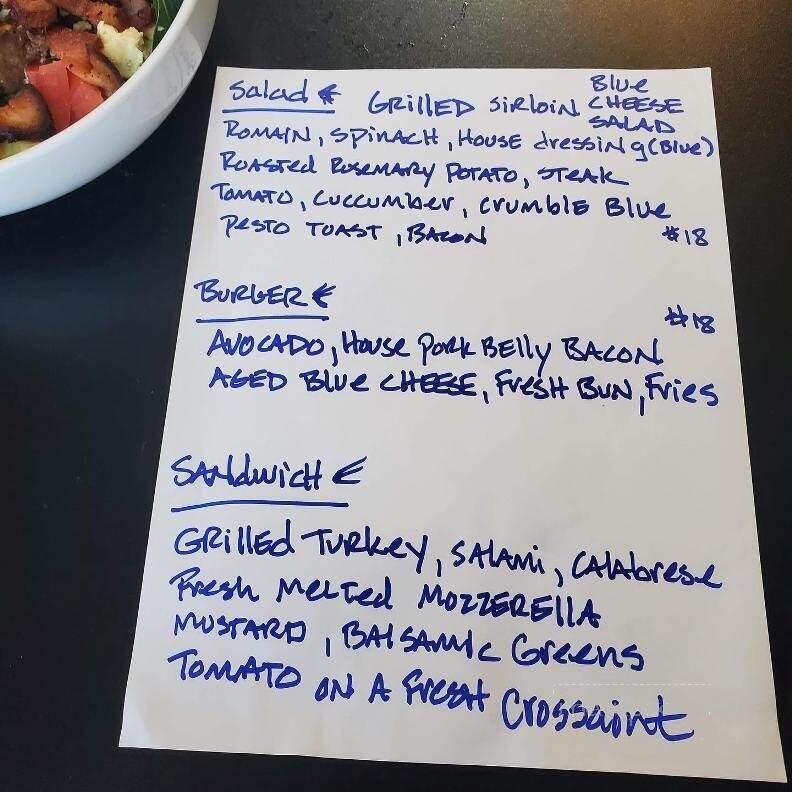 Salad GRILLED SIRLOIN BLUE CHEESE SALAD
ROMAIN, SPINACH, HOUSE dressing (BLUE)
ROASTED ROSEMARY POTATO, STEAK
TOMATO, CUCCUMBER, CRUMBLE BLUE
PESTO TOAST, BACON #18
BURGER #18
AVOCADO, HOUSE PORK BELLY BACON
AGED BLUE CHEESE, FRESH BUN, FRIES
SANDWICH
GRILLED TURKEY, SALAMI, CALABRESE
FRESH MELTED MOZZERELLA
MUSTARD, BALSAMIC GREENS
TOMATO ON A FRESH CROSSAINT